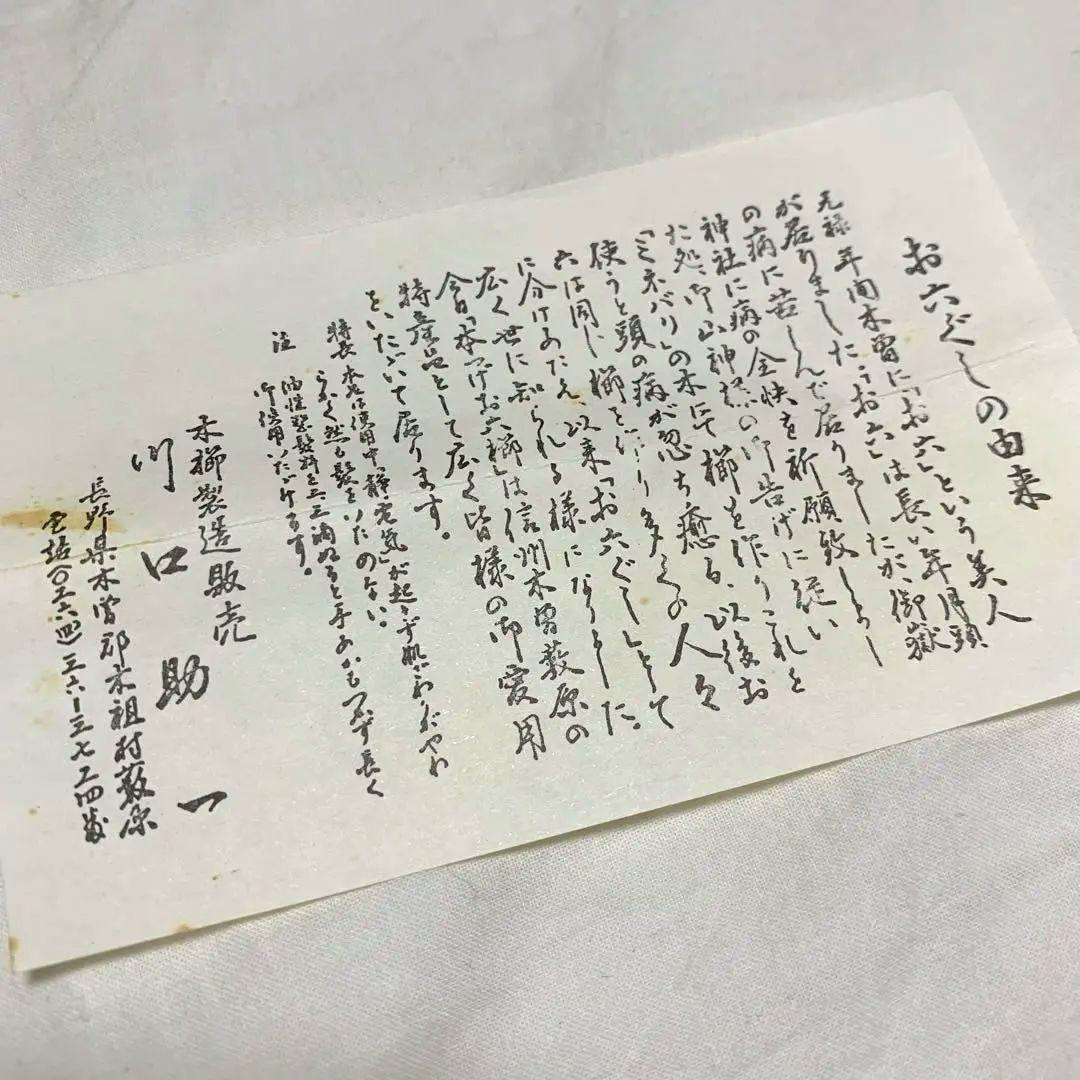 お六ぐしの由来
元禄年間木曽に「お六」という美人
が居りました「お六」は長い年月頭
の病に苦しんで居りましたが、御嶽
神社に病の全快を祈願致しまし
た処、御山神様の御告げに従い
「ミネバリ」の木にて櫛を作りこれを
使うと頭の病が忽ち癒る、以後お
六は同じ櫛を作り多くの人々
に分けあたえ、以来「お六ぐし」として
広く世に知られる様になりました。
今日「本つげお六櫛」は信州木曽薮原の
特産品として広く皆様の御愛用
をいただいて居ります。
特長 本品は使用中「静電気」が起らず肌にわりがやわ
らかく然も髪をいためない。
注 油性整髪料を二三滴ぬると手あかもつかず長く
御使用いただけます。
木櫛製造販売
川口助一
長野県木曽郡木祖村薮原
電話〇二六四三六ー三七二四番